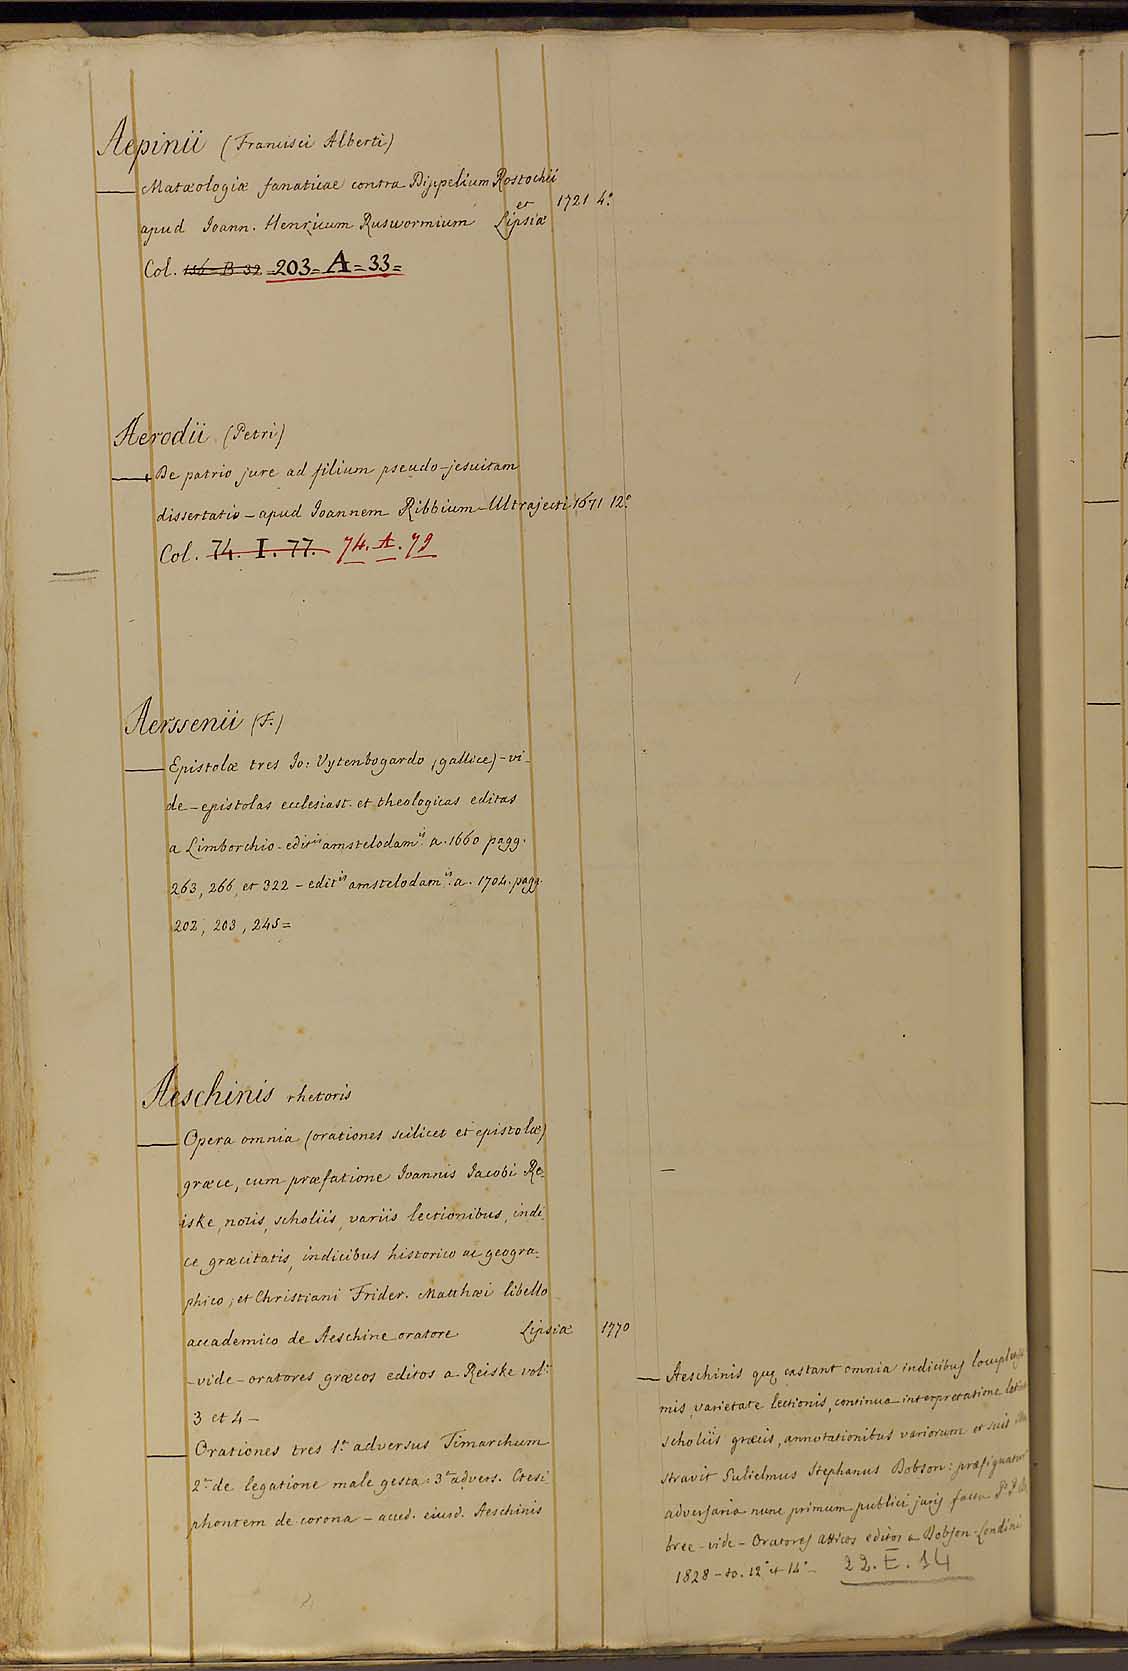 Aepinii (Francisci Alberti)
Matæologiæ fanaticae contra Dippelium Rostochii
et 1721 4.°
apud Joann. Henricum Ruswormium Lipsiæ
Col. 156-B 32 =203=A=33=
Aerodii (Petri)
De patrio jure ad filium pseudo-jesuitam
dissertatio - apud Joannem Ribbium - Ultrajecti 1671 12.°
Col. 74. I. 77. 74. A. 79
Aerssenii (F.)
Epistolæ tres Jo: Vytenbogardo (gallice) - vi-
de - epistolas ecclesiast. et theologicas editas
a Limborchio - edit.is amstelodam.is a. 1660 pagg.
263, 266, et 322 - edit.is amstelodam.is a. 1704. pagg.
202, 203, 245=
Aeschinis rhetoris
Opera omnia (orationes scilicet et epistolæ)
græce, cum præfatione Joannis Jacobi Re-
iske, notis, scholiis, variis lectionibus, indi-
ce græcitatis, indicibus historico ac geogra-
phico, et Christiani Frider. Matthæi libello
accademico de Aeschine oratore Lipsiæ 1770
- vide - oratores græcos editos a Reiske vol.
3 et 4 -
Orationes tres 1.a adversus Timarchum
2.a de legatione male gesta: 3.a advers. Ctesi
phontem de corona - acced. eiusd. Aeschinis
Aeschinis quę exstant omnia indicibus
mis, varietate lectionis, continua interpretatione
scholiis græcis, annotationibus variorum et suis
stravit Gulielmus Stephanus Dobson: præfiguntur
adversaria nunc primum publici juris facta
bree - vide - Oratores atticos editos a Dobson - Londini
1828 - to. 12° et 14° - 22. E. 14